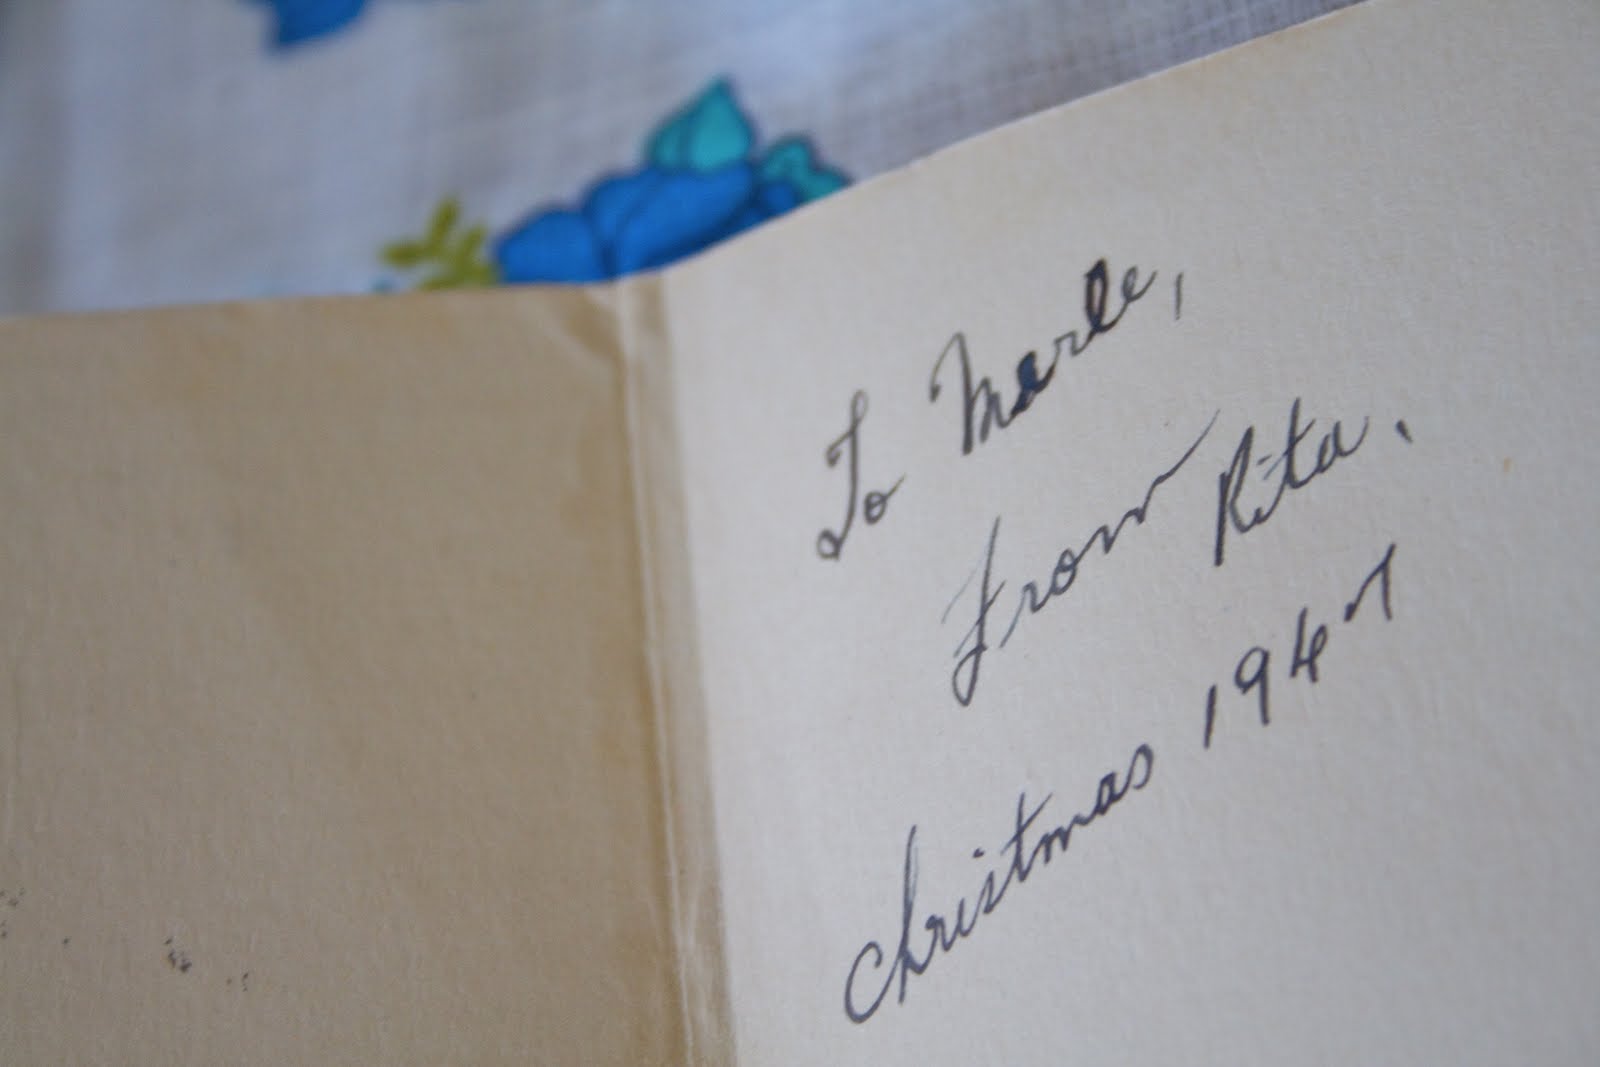 To Merle,
From Rita.
Christmas 1947